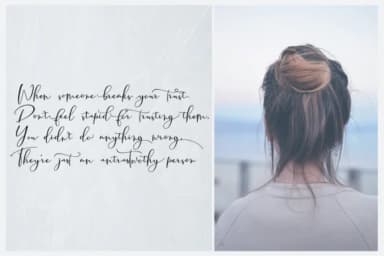 When someone breaks your trust
Don't feel stupid for trusting them.
You didn't do anything wrong.
They're just an untrustworthy person